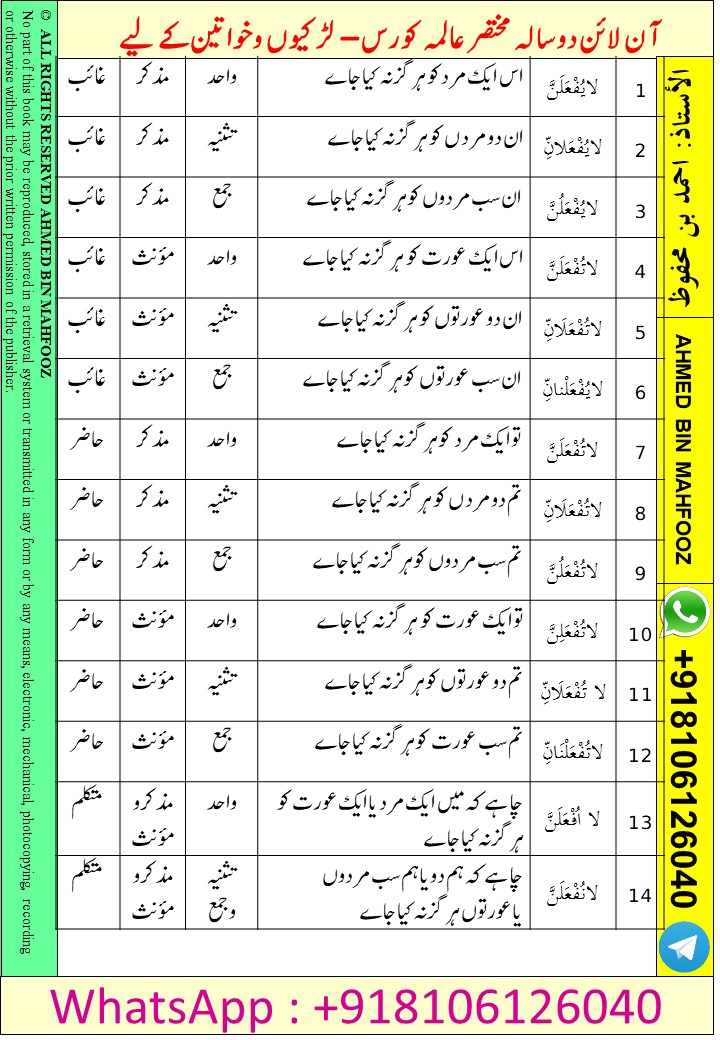 آن لائن دوسالہ مختصر عالمہ کورس – لڑکیوں وخواتین کے لیے
1 لایُفْعَلَنَّ اس ایک مرد کو ہر گز نہ کیا جاے واحد مذکر غائب
2 لایُفْعَلَانِّ ان دو مردں کو ہر گز نہ کیا جاے تثنیہ مذکر غائب
3 لایُفْعَلُنَّ ان سب مردوں کو ہر گز نہ کیا جاے جمع مذکر غائب
4 لاتُفْعَلَنَّ اس ایک عورت کو ہر گز نہ کیا جاے واحد مؤنث غائب
5 لاتُفْعَلَانِّ ان دو عورتوں کو ہر گز نہ کیا جاے تثنیہ مؤنث غائب
6 لایُفْعَلْنانِّ ان سب عورتوں کو ہر گز نہ کیا جاے جمع مؤنث غائب
7 لاتُفْعَلَنَّ تو ایک مرد کو ہر گز نہ کیا جاے واحد مذکر حاضر
8 لاتُفْعَلَانِّ تم دو مردں کو ہر گز نہ کیا جاے تثنیہ مذکر حاضر
9 لاتُفْعَلُنَّ تم سب مردوں کو ہر گز نہ کیا جاے جمع مذکر حاضر
10 لاتُفْعَلِنَّ تو ایک عورت کو ہر گز نہ کیا جاے واحد مؤنث حاضر
11 لا تُفْعَلَانِّ تم دو عورتوں کو ہر گز نہ کیا جاے تثنیہ مؤنث حاضر
12 لاتُفْعَلْنَانِّ تم سب عورت کو ہر گز نہ کیا جاے جمع مؤنث حاضر
13 لا اُفْعَلَنَّ چاہے کہ میں ایک مرد یا ایک عورت کو واحد مذکرو متکلم
ہر گز نہ کیا جاے مؤنث
14 لانُفْعَلَنَّ چاہے کہ ہم دو یا ہم سب مردوں تثنیہ مذکرو متکلم
یا عورتوں ہر گز نہ کیا جاے وجمع مؤنث
الأستاذ: احمد بن محفوظ
AHMED BIN MAHFOOZ
+918106126040
© ALL RIGHTS RESERVED AHMED BIN MAHFOOZ
No part of this book may be reproduced, stored in a retrieval system or transmitted in any form or by any means, electronic, mechanical, photocopying, recording
or otherwise without the prior written permission of the publisher.
WhatsApp : +918106126040